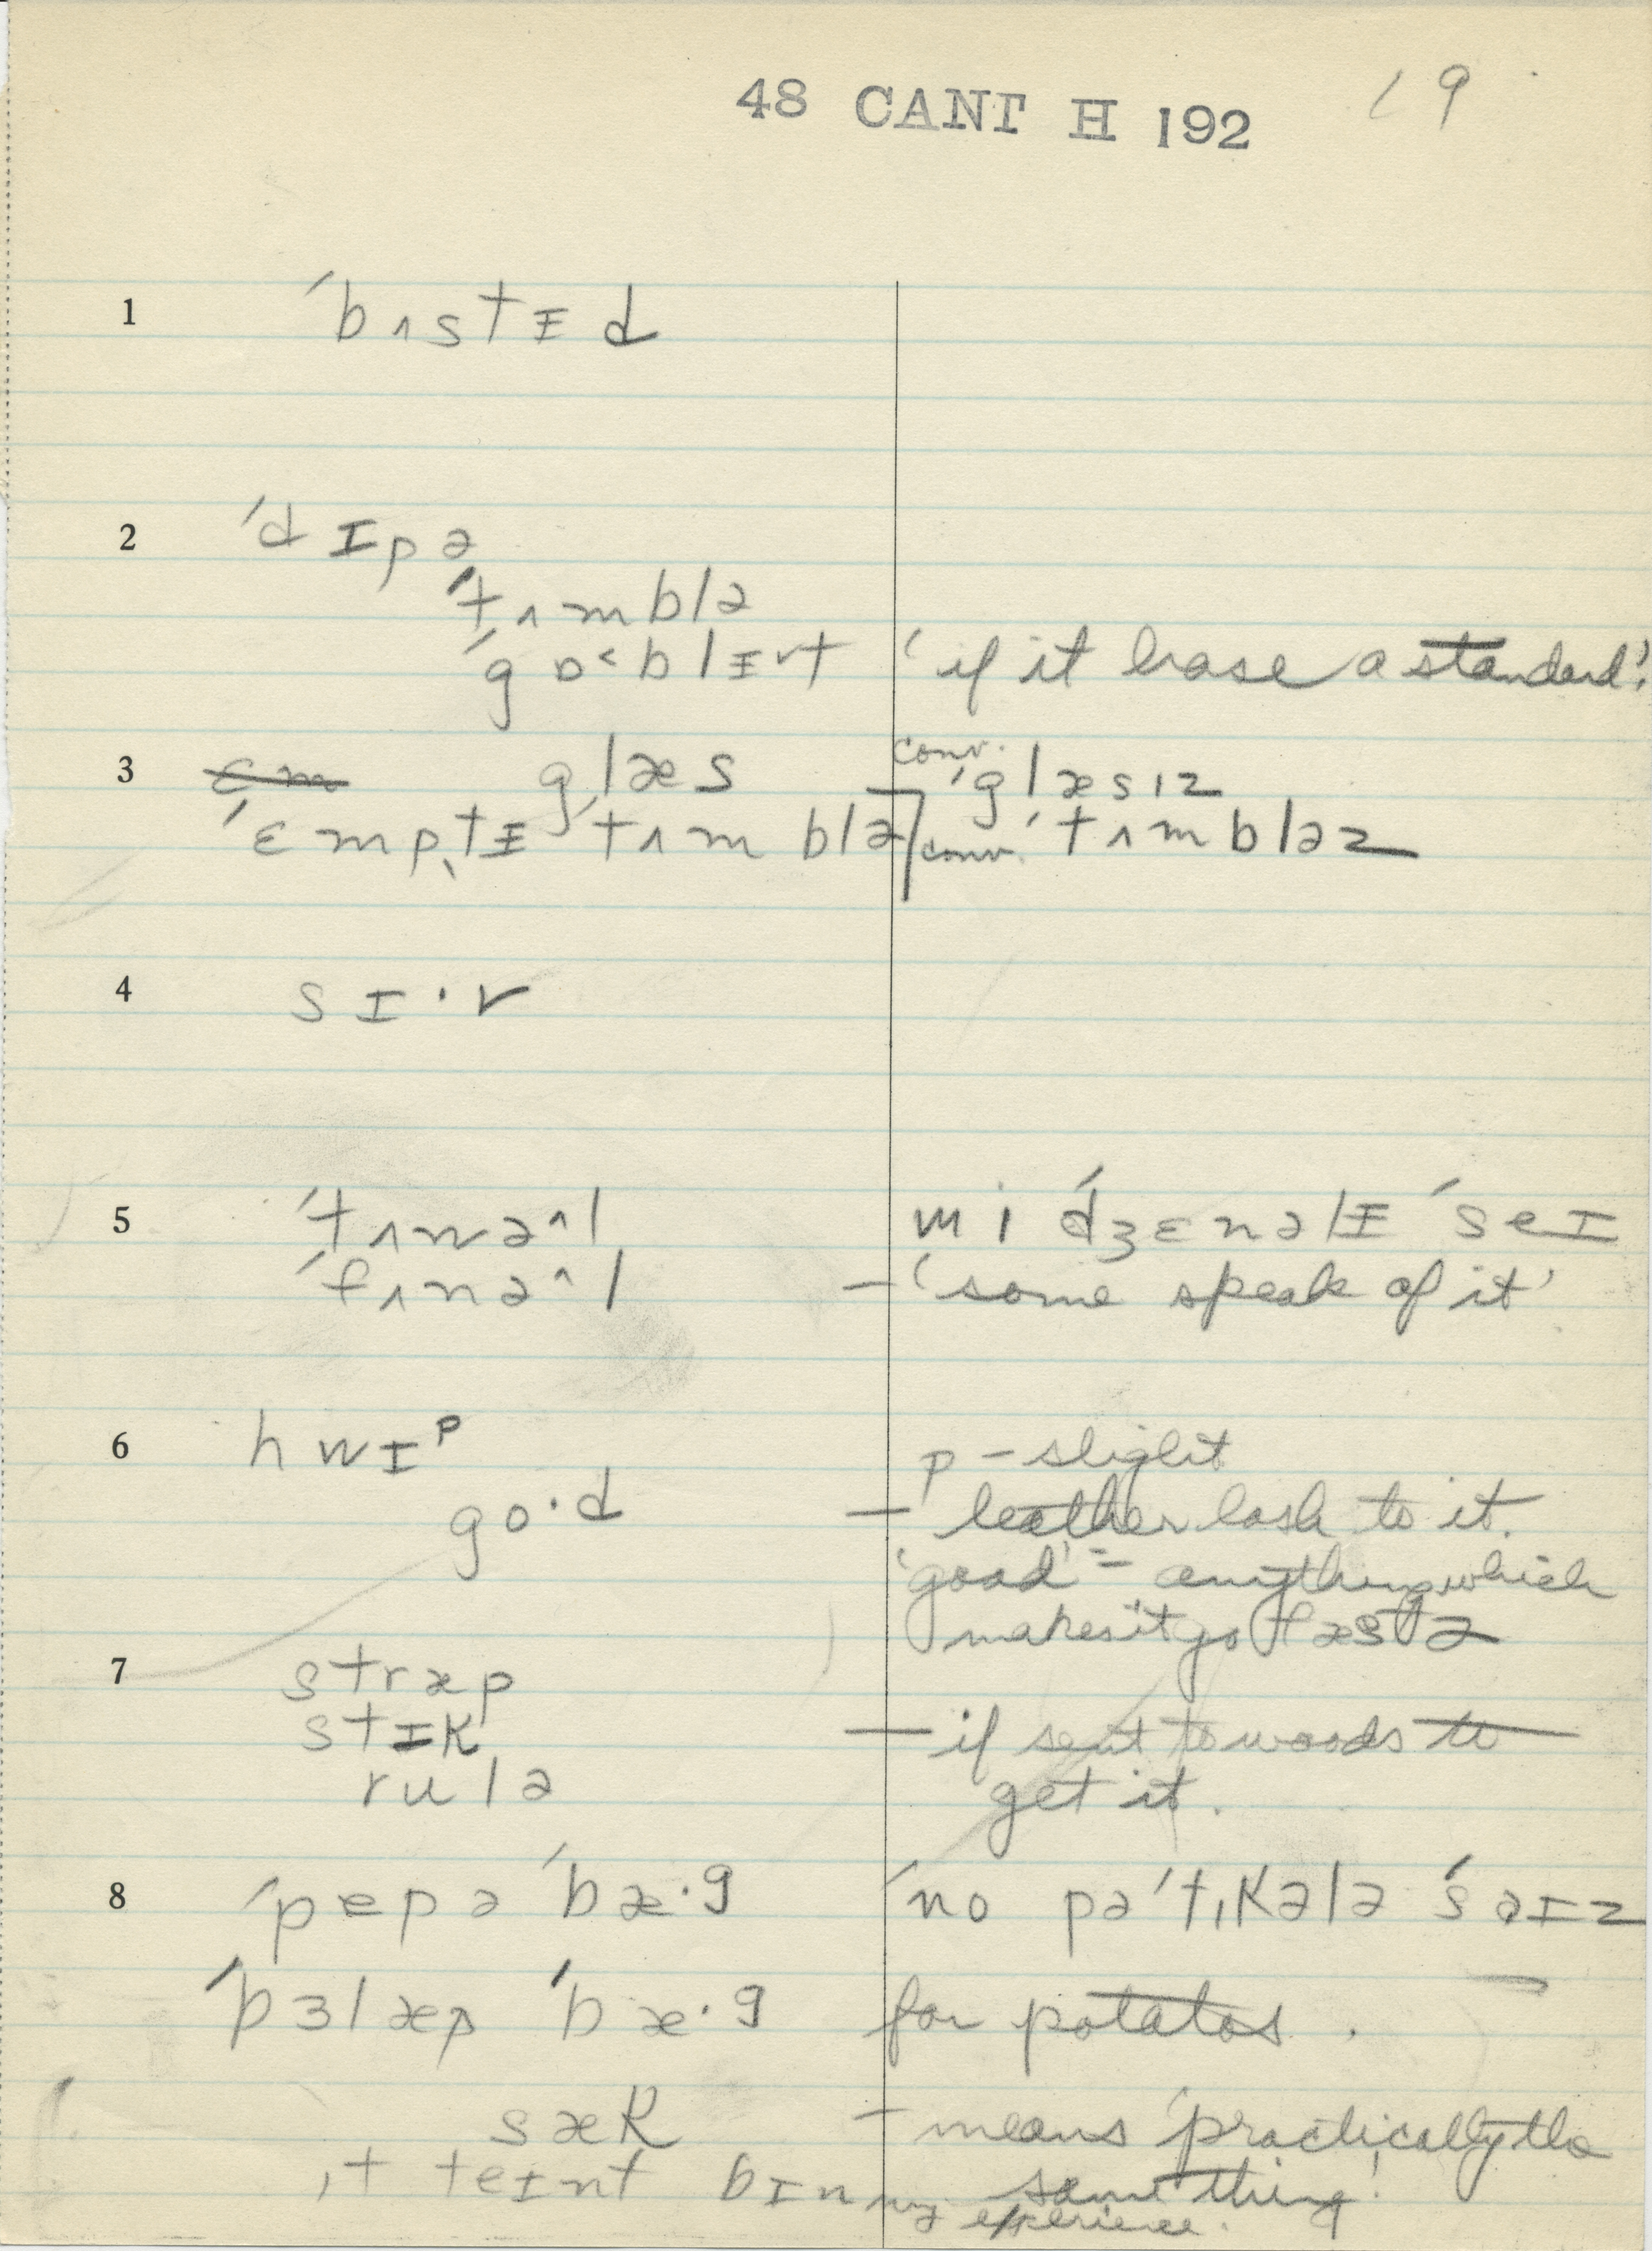 48 CANT H 192 19
1 ´bʌstɪd
2 ´dɪpə
´tʌmblə
´gɒ˂blɪ˅t ‘if it has a standard’.
3 ɛm glæs conv. ´glæsɪz
´ɛmptɪ ´tʌmblə conv. ´tʌmbləz
4 sɪ·v
5 ´tʌnə^l wi ´dʒɛnəlɪ ´seɪ
´fʌnə^l – ‘some speak of it’
6 hwɪᵖ p – slight
go·d – leather lash to it.
‘goad’ = anything which
makes it go fæstə
7 stræp
stɪk – if sent to woods to
rulə get it.
8 ´pepə ´bæ·g ´no pə´tɪkələ ´saɪz
´bɜlæp ´bæ·g for potatos.
sæk – means ‘practically the
ɪt teɪnt bɪn my same thing’.
experience.